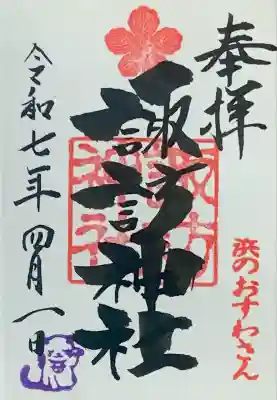 奉拝
浜のおすわさん
諏訪神社
諏訪神社
令和七年四月一日